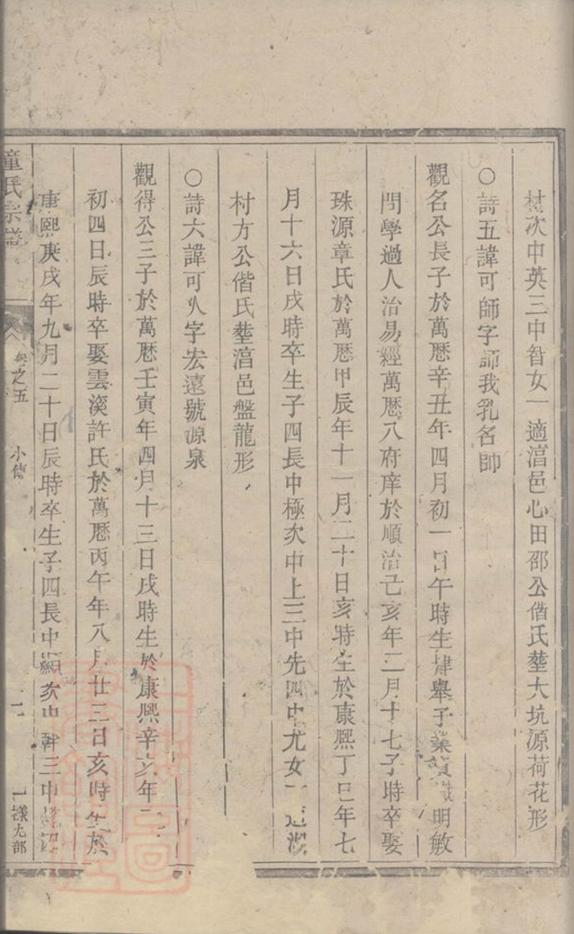 次中英三中智女一適淯邑心田邵公偕氏塟大坑源荷花形
○詩五諱可師字師我乳名師
觀名公長子於萬歷辛丑年四月初一日午時生肄舉子業質明敏
問學過人治易經萬歷入府庠於順治己亥年二月十七子時卒娶
珠源章氏於萬歷甲辰年十一月二十日亥時生於康熙丁巳年七
月十六日戌時卒生子四長中極次中上三中先四中尤女一適
村方公偕氏塟淯邑盤龍形
○詩六諱可久字宏遠號源泉
觀得公三子於萬歷壬寅年四月十三日戌時生於康熙辛亥年二
初四日辰時卒娶雲溪許氏於萬歷丙午年八月廿三日亥時生於
康熙庚戌年九月二十日辰時卒生子四長中顯次中幹三中
童氏宗譜
卷之五
小傳